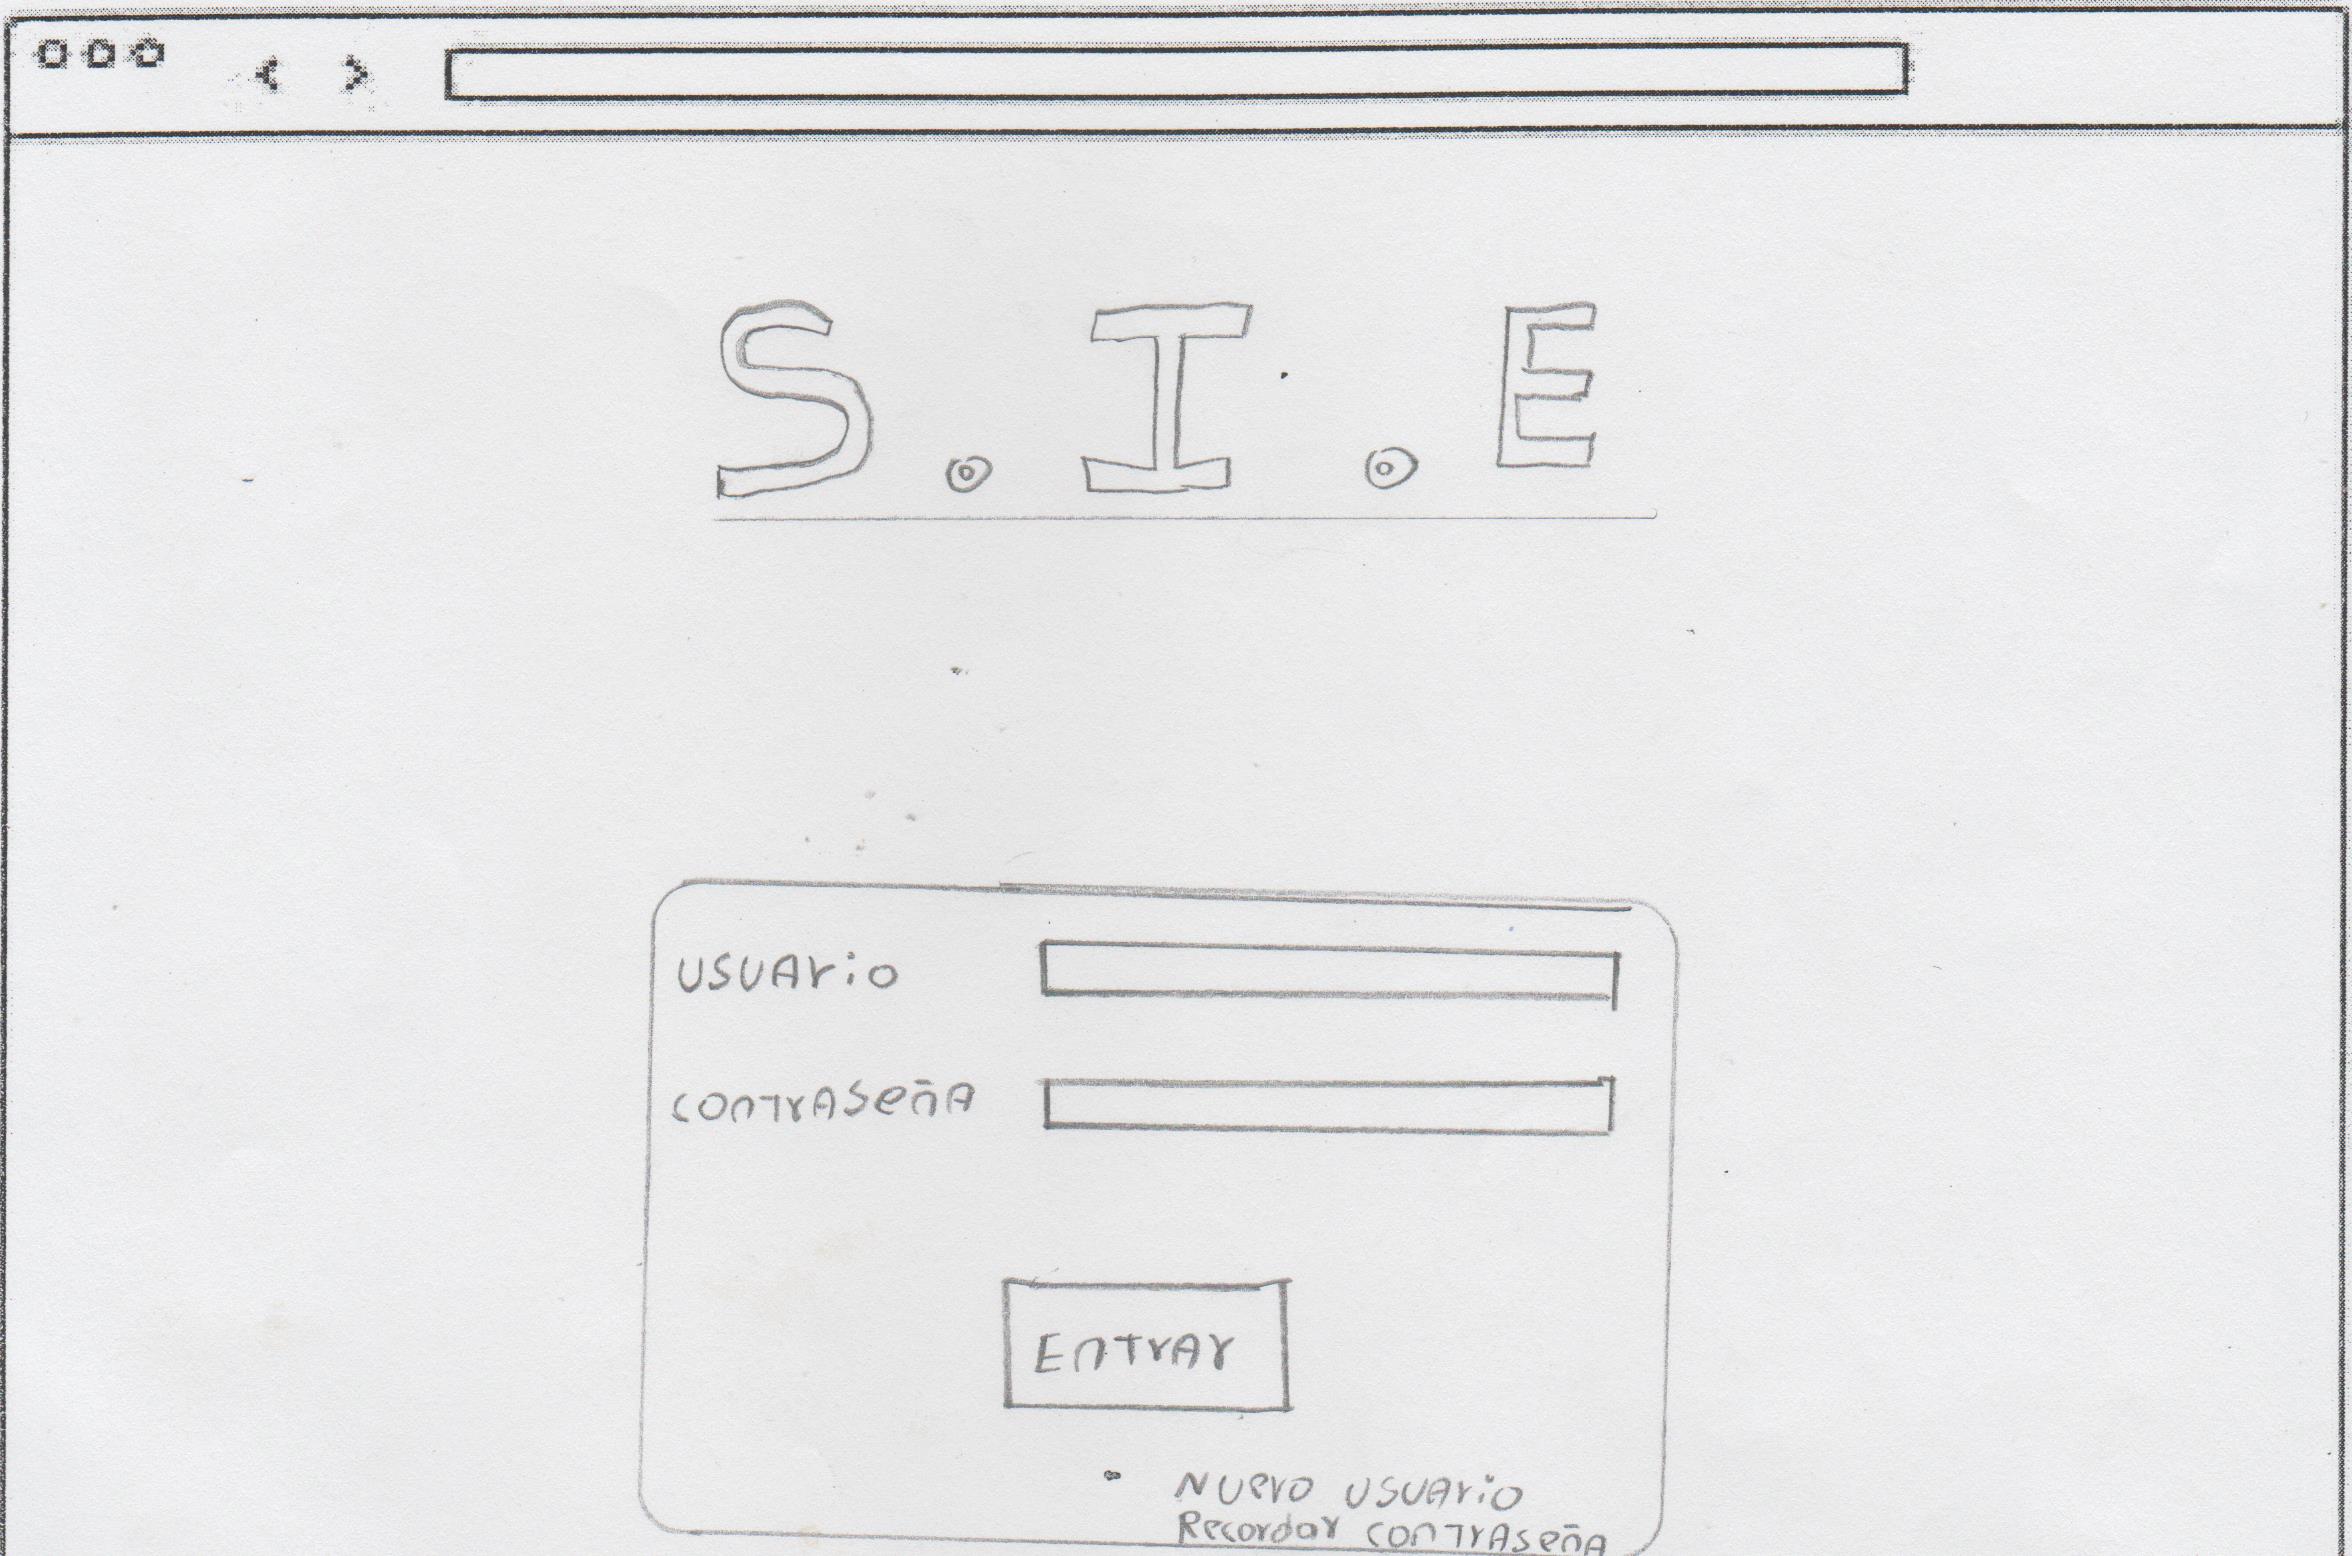 S.I.E
USUARiO
CONTRASEÑA
ENTRAR
NUEVO USUARiO
Recordar CONTRASEÑA